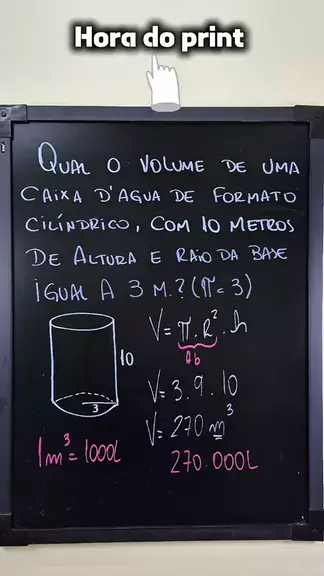 Hora do print
QUAL O VOLUME DE UMA
CAIXA D'AGUA DE FORMATO
CILÍNDRICO, COM 10 METROS
DE ALTURA E RAIO DA BASE
IGUAL A 3 M.? (π=3)
V= π.R².h
Ab
10
V= 3.9.10
3
V= 270 m³
1m³ = 1000L
270.000L